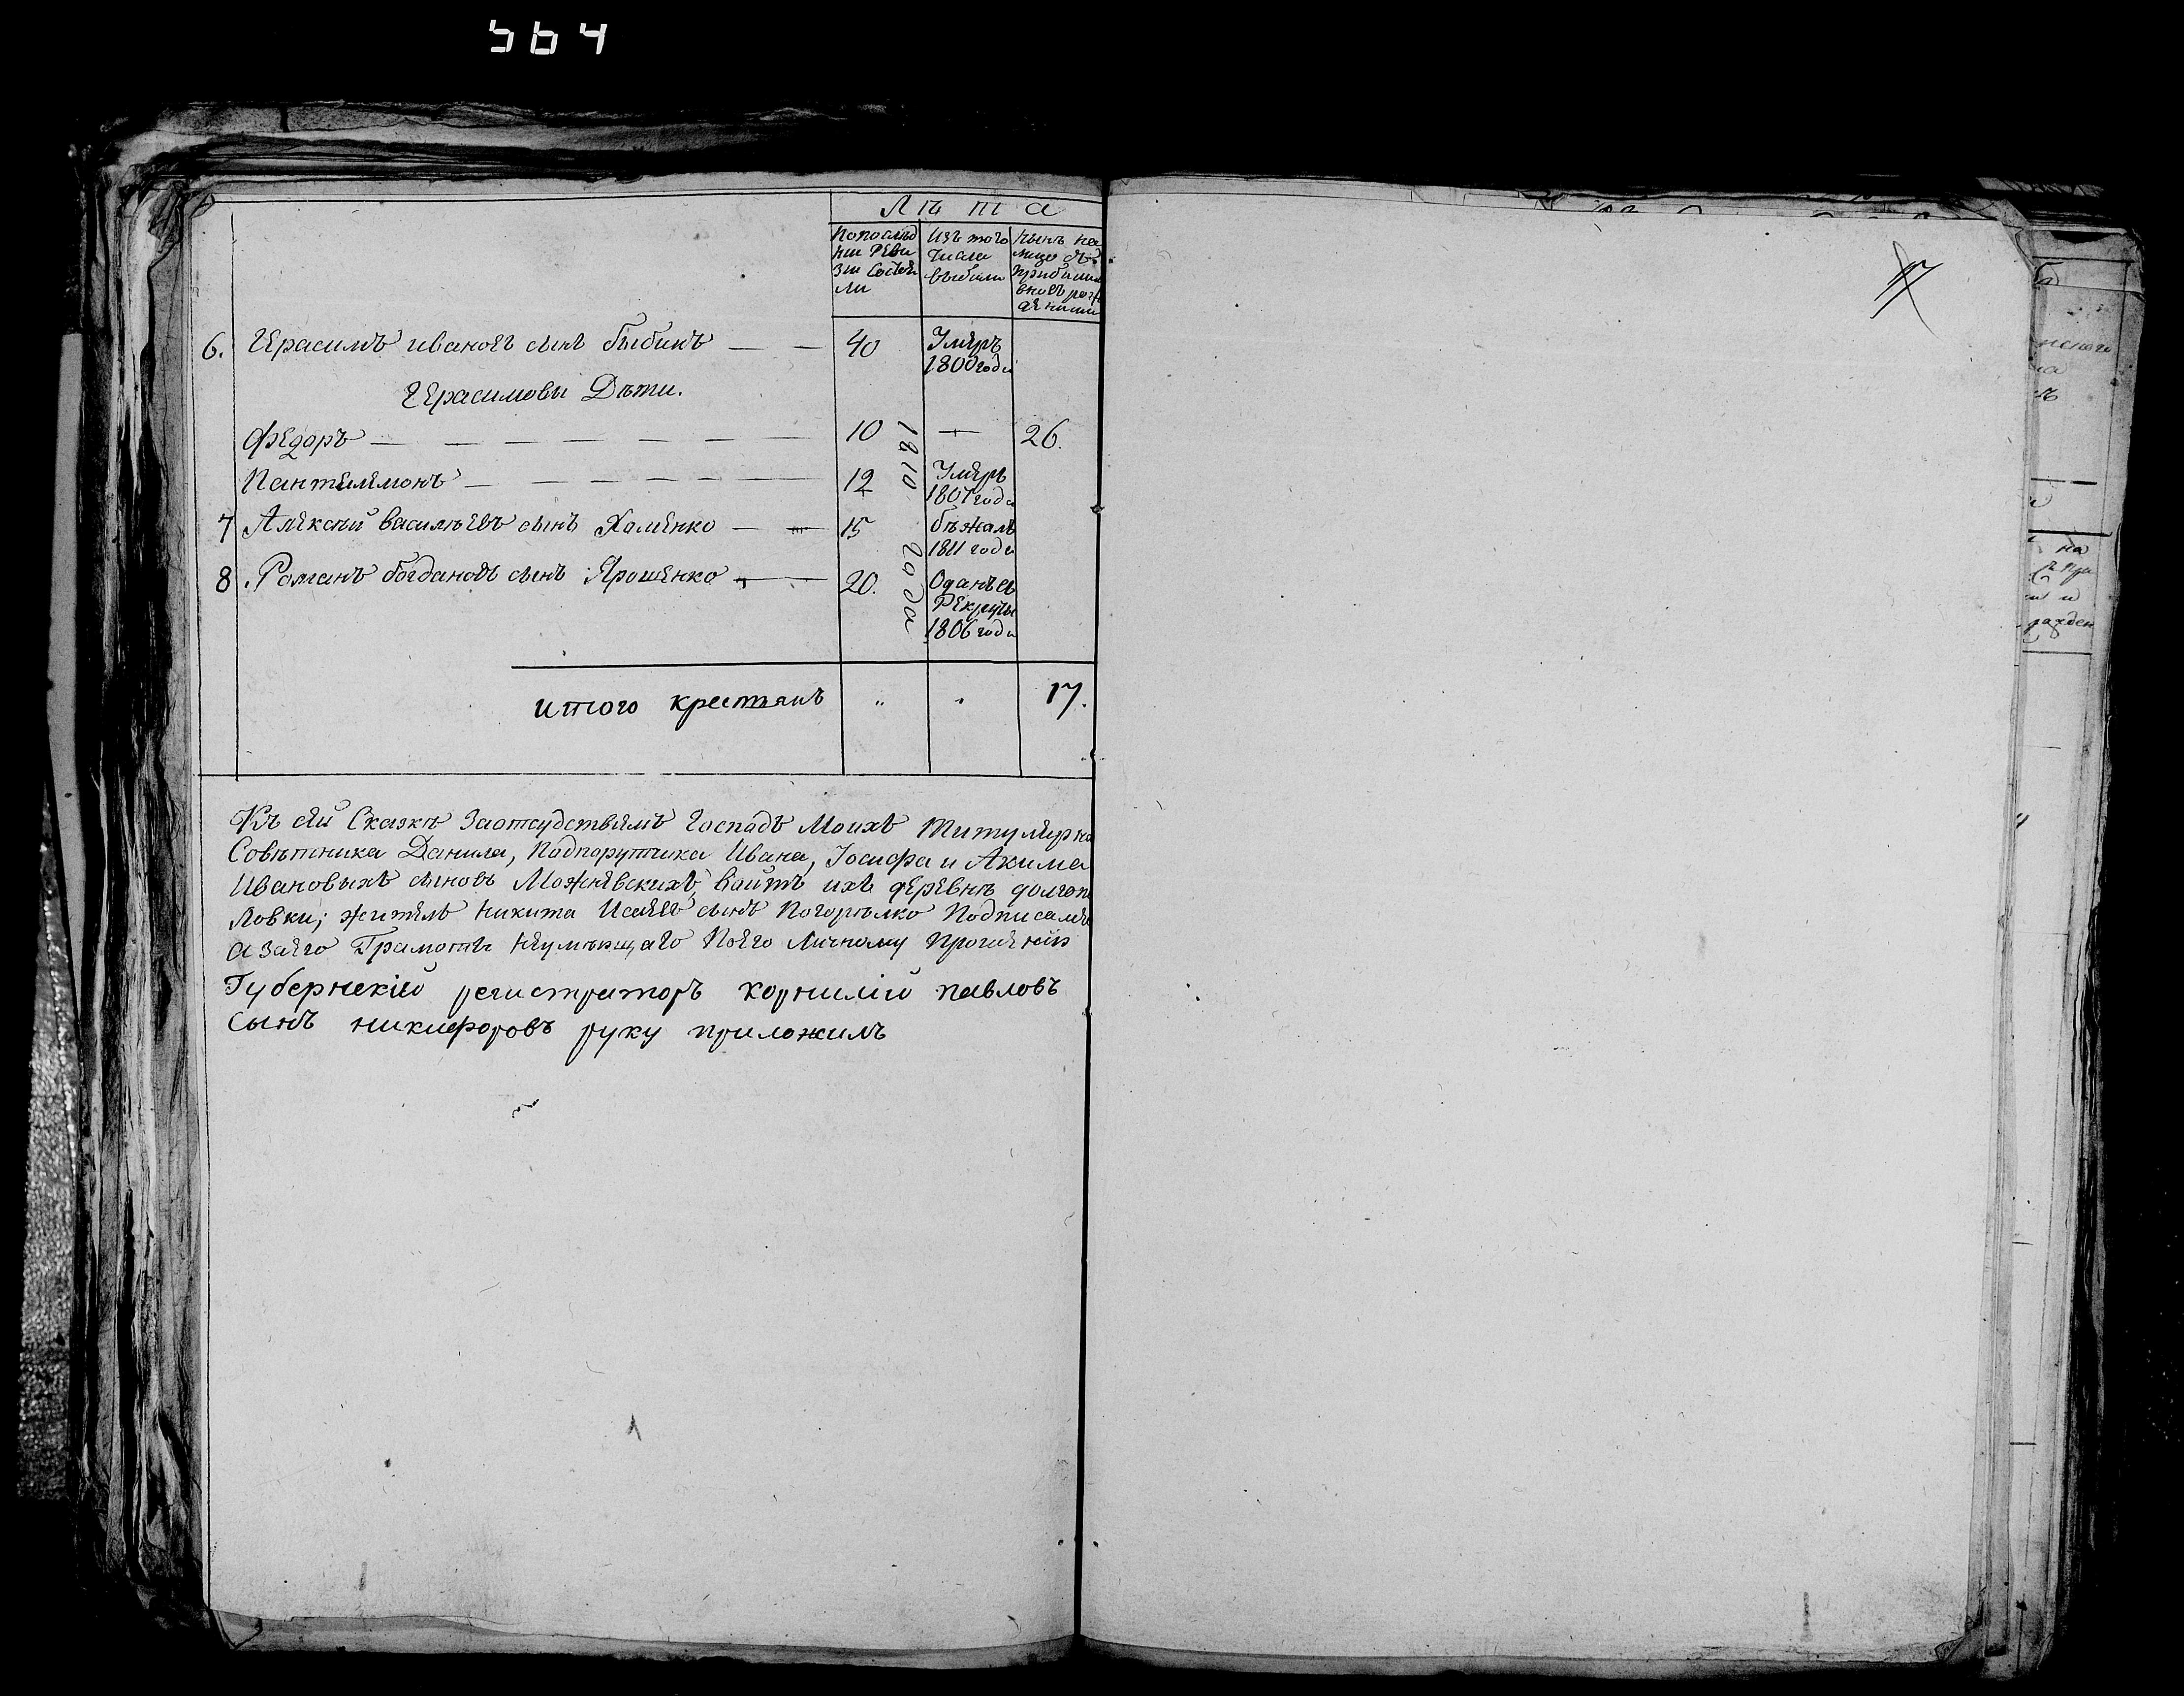 564
Лѣта
Попослѣд Изъ того Нынѣ на
ней Реви числа лицо съ
зіи состоя выбыли прибылими
ли вновь рож
денними
6. Герасимъ ивановъ сынъ быбикъ — — 40 Умеръ
1800 года
Герасимовы Дѣти.
Федоръ — — — — — — — 10 — 26.
Пантелемонъ — — — — — — 12 Умеръ
1801 года
7 Алексѣй василѣевъ сынъ Хоменко — — 15 бѣжалъ
1811 года
8. Романъ богдановъ сынъ Ярошенко — — 20. Оданъ въ
Рекруты
1806 года
1810 года
итого крестянъ „ „ 17.
Къ сей Сказкѣ Заотсудствиемъ Господъ Моихъ Титулярна
Совѣтника Данила, Подпорутчика Ивана, Іосифа и Акима
Ивановыхъ сыновъ Можневскихъ, войтъ ихъ деревнѣ долгоп
ловки; житель Никита Исаевъ сынъ Погорѣлко Подписалъ
А заего Грамотѣ Неумѣющаго Поего Личному Прошенію
Губернскій регистраторъ корнилій павловъ
сынъ никифоровъ руку приложилъ
17
на